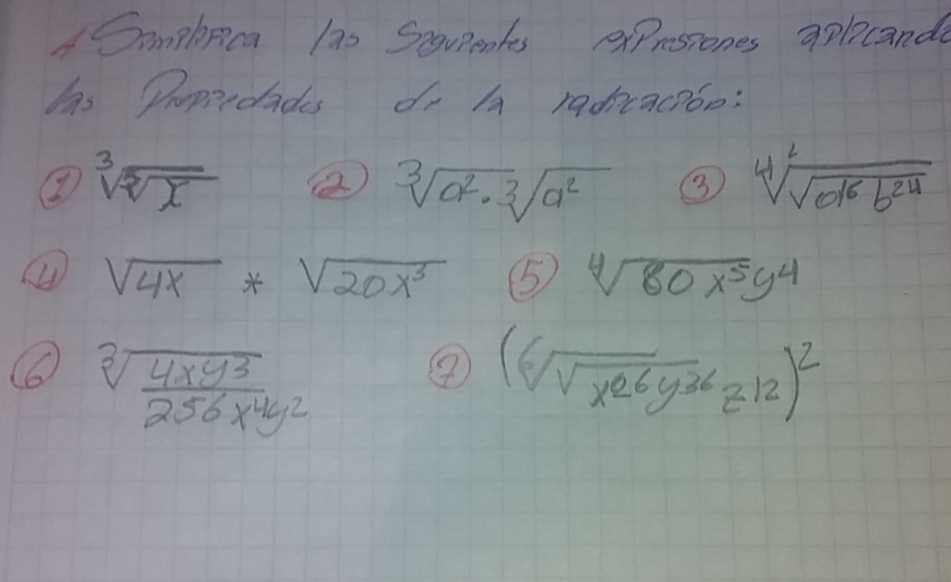 Simplifica las Siguientes expresiones aplicando
las Propiedades de la radicación:
① ∛∛x ② ∛a² · ∛a² ③ ∜√a¹⁶ b²⁴
④ √4x * √20x³ ⑤ ∜80x⁵y⁴
⑥ ∛(4xy³ / 256x⁴y²) ⑦ (⁶√√x²⁶y³⁶z12)²